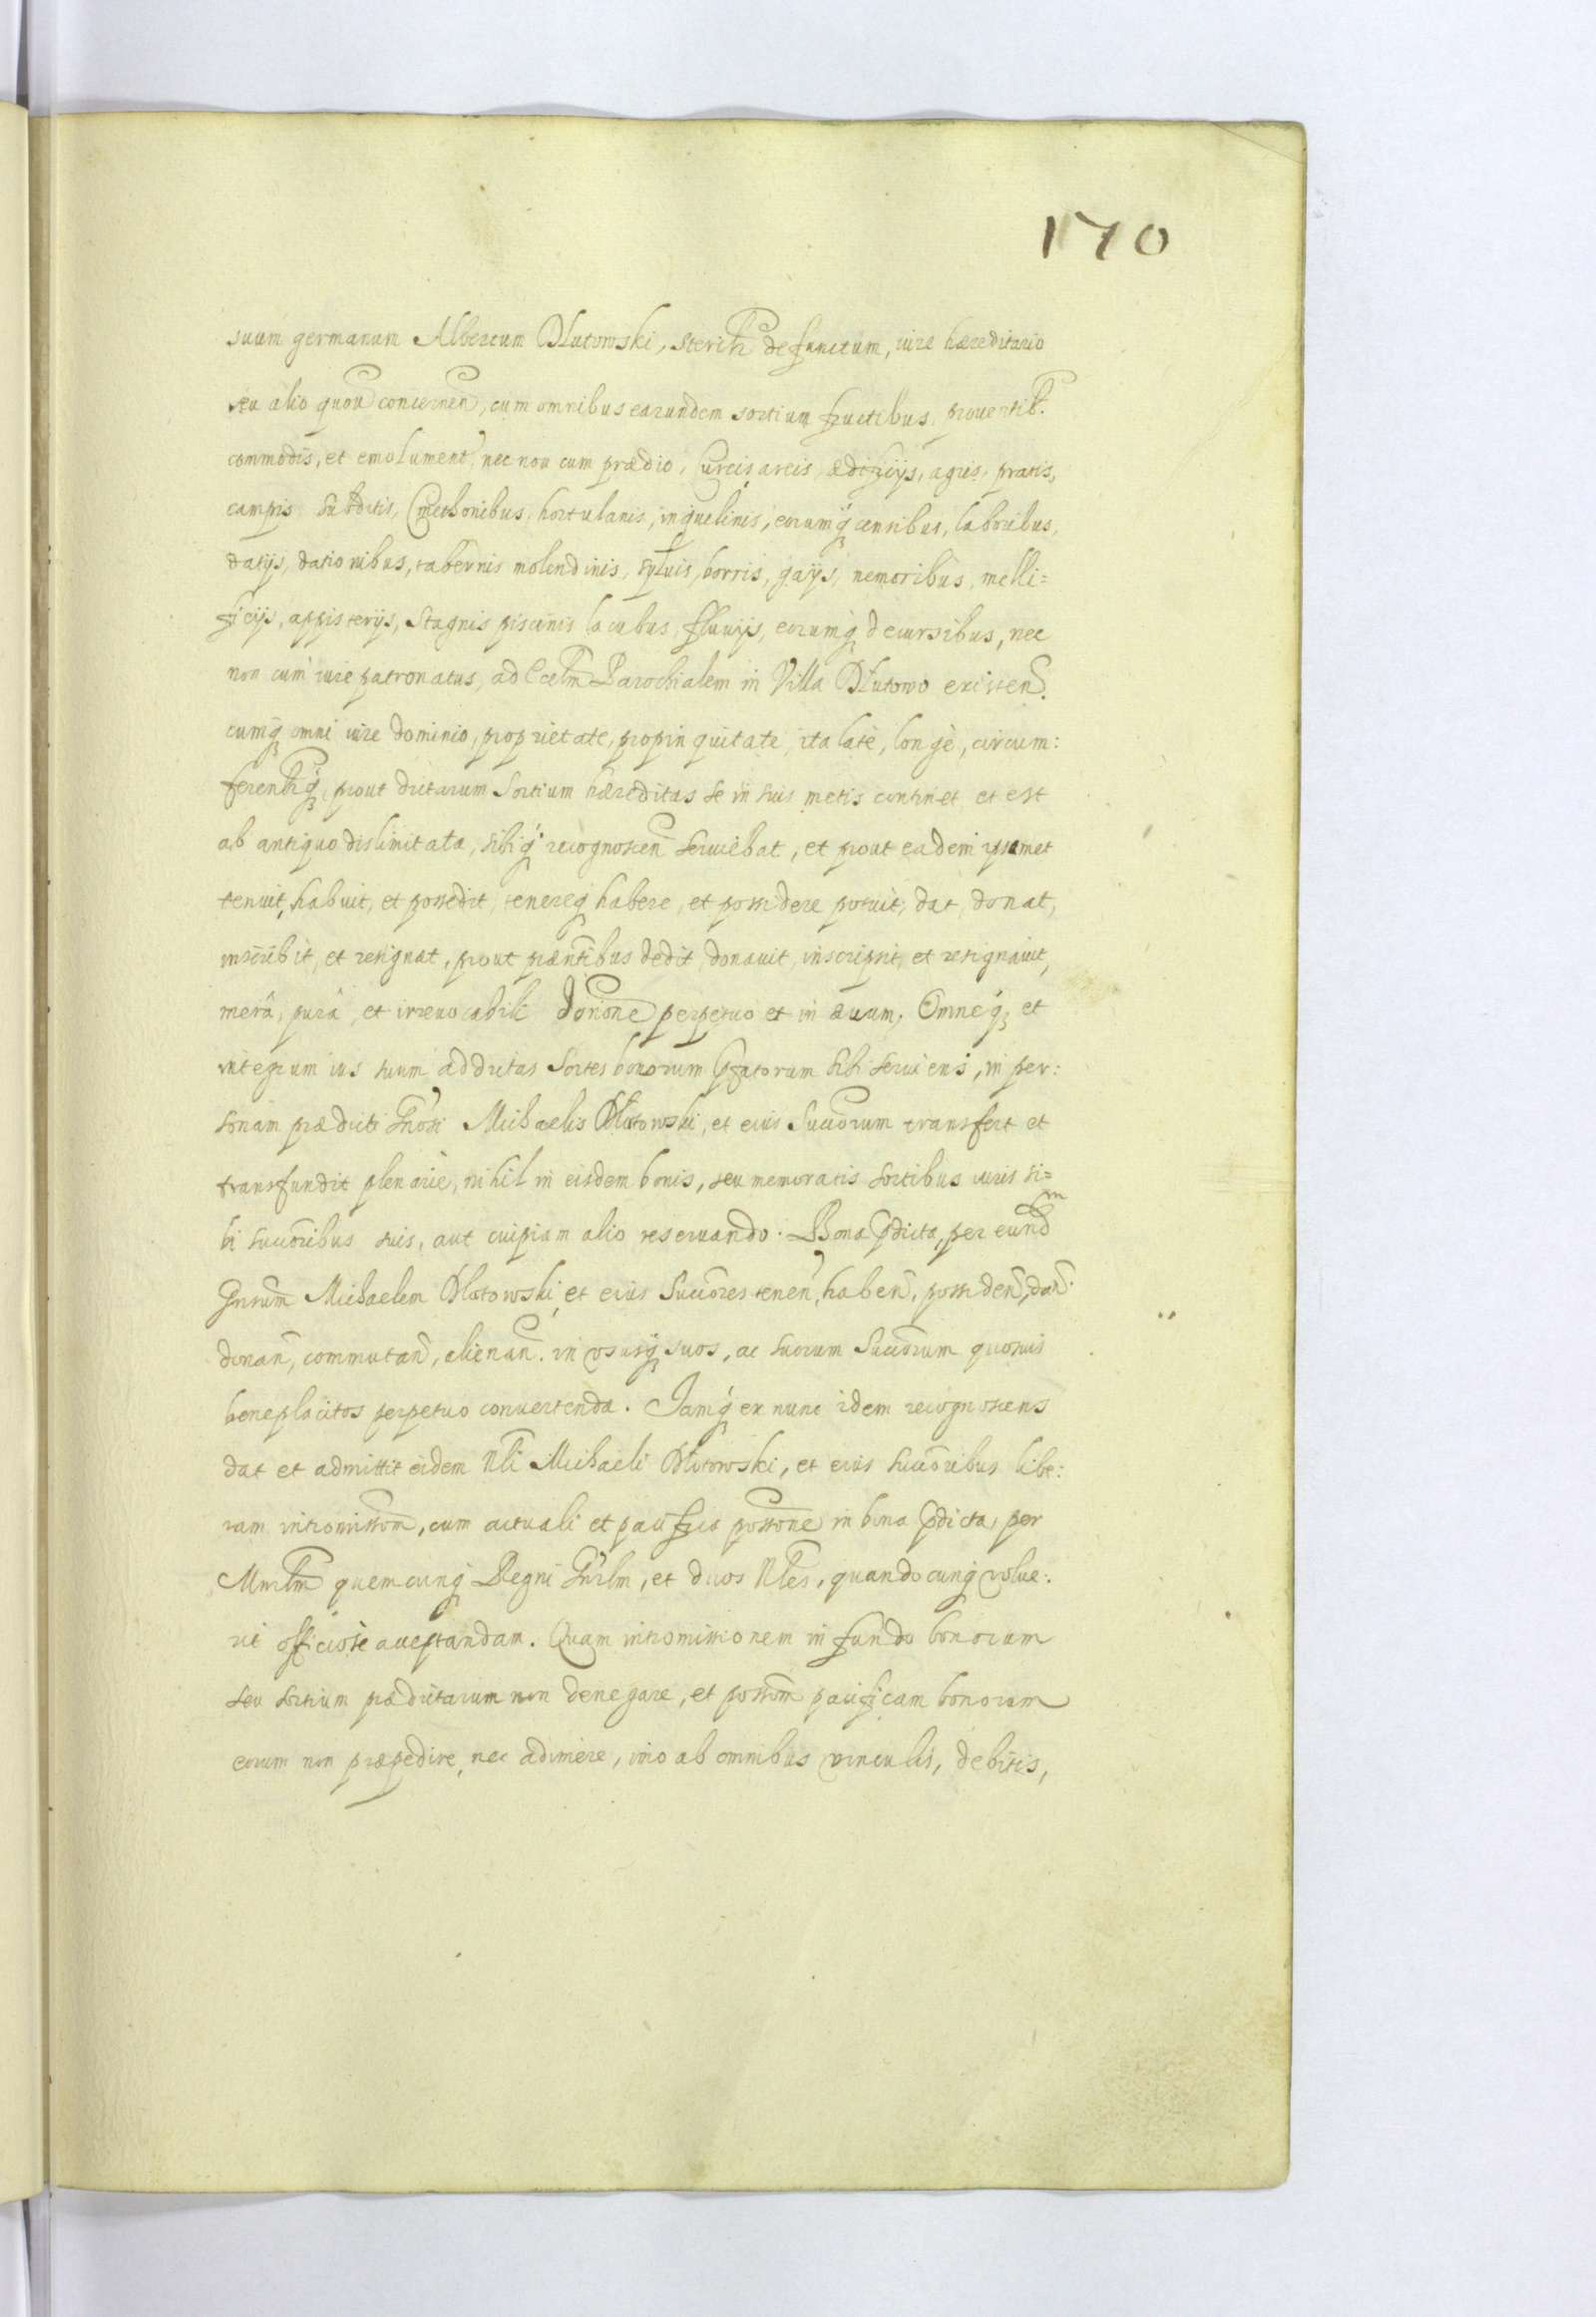 170
suum germanum Albertum Dłutowski, steril̃r defunctum, iure hæreditario
seu alio quoũ concernen̄, cum omnibus earundem sortium fructibus, prouentib.
commodis, et emolument̄ nec non cum prædio, Curcis, areis, ædificijs, agris, pratis,
campis Subditis, Cmethonibus, hortulanis, inquelinis, eorumq́ censibus, laboribus,
datijs, dationibus, tabernis molendinis, syluis, borris, gaijs, nemoribus, melli=
ficijs, appisterijs, Stagnis piscinis lacubus, fluuijs, eorumq́ decursibus, nec
non cum iure patronatus, ad Eccl̃m Parochialem in Villa Dłutowo existen̄.
cumq́ omni iure dominio, proprietate, propinquitate, ita latè, longè, circum:
ferent̄rq́, prout dictarum Sortium hæreditas se in suis metis continet, et est
ab antiquo dislimitata, sibiq́ recognoscen̄ seruiebat, et prout eadem ipsamet
tenuit, habuit, et possedit, tenereq́ habere, et possidere potuit, dat, donat,
inscribit, et resignat, prout præn̄tibus dedit, donauit, inscripsit, et resignauit,
merâ, purâ, et irreuocabili don̄one perpetuo et in æuum, Omneq́, et
integrum ius suum ad dictas Sortes bonorum p̄fatorum sibi seruiens, in per:
sonam prædicti Gn̄osi Michaelis Dłotowski, et eius Succ̄orum transfert et
transfundit plenariè, nihil in eisdem bonis, seu memoratis sortibus iuris si=
bi succ̄oribus suis, aut cuipiam alio reseruando. Bona p̄dicta, per eund̄m
Gn̄sum Michaelem Dłotowski, et eius Succ̄ores tenen̄, haben̄, possiden̄, dan̄.
donan̄, commutan̄, alienan̄. in ususq́ suos, ac suorum Succ̄orum quosuis
beneplacitos perpetuo conuertenda. Iamq́ ex nunc idem recognoscens
dat et admittit eidem Nl̄i Michaeli Dłotowski, et eius succ̄oribus libe:
ram intromiss̄om̄, cum actuali et pacifica poss̄one in bona p̄dicta, per
Mnrl̄m quemcunq́ Regni Gn̄rlm, et duos Nl̄es, quandocunq́ volue:
rit officiosè acceptandam. Quam intromissionem in fundo bonorum
seu sortium prædictarum non denegare, et poss̄om̄ pacificam bonorum
eorum non præpedire, nec adimere, imo ab omnibus vinculis, debitis,